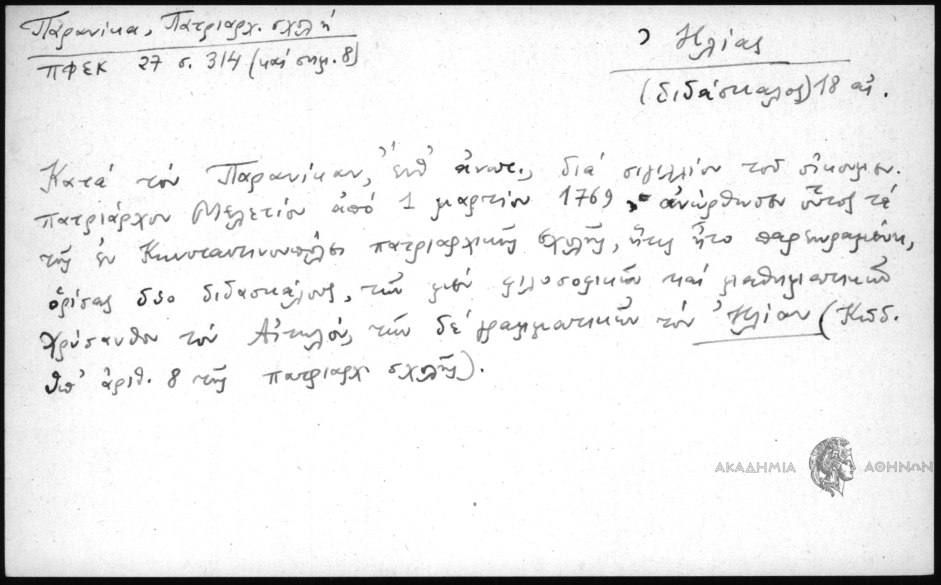 Παρανίκα, Πατριαρχ. σχολή
ΠΦΕΚ 27 σ. 314 (καί σημ. 8)
Ἠλίας
(διδάσκαλος) 18 αἰ.
Κατά τόν Παρανίκαν, ἔνθ' ἀνωτ., διά σιγιλλίου τοῦ οἰκουμεν.
πατριάρχου Μελετίου ἀπό 1 μαρτίου 1769, ἀνώρθωσεν οὗτος τά
τῆς ἐν Κωνσταντινουπόλει πατριαρχικῆς σχολῆς, ἥτις ἦτο παρηκμασμένη,
ὁρίσας δύο διδασκάλους, τῶν μέν φιλοσοφικῶν καί μαθηματικῶν
Χρύσανθον τόν Αἰτωλόν, τῶν δέ γραμματικῶν τόν Ἠλίαν (Κῶδ.
ὑπ' ἀριθ. 8 τῆς πατριαρχ. σχολῆς).
ΑΚΑΔΗΜΙΑ ΑΘΗΝΩΝ